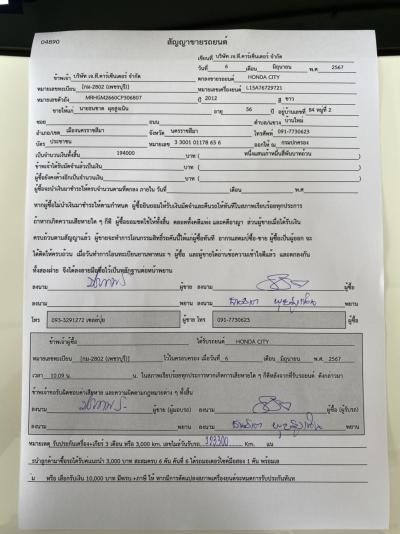 04890
สัญญาขายรถยนต์
เขียนที่ บริษัท เจ.ที.คาร์เซ็นเตอร์ จำกัด
วันที่ 6 เดือน มิถุนายน พ.ศ 2567
ข้าพเจ้า บริษัท เจ.ที.คาร์เซ็นเตอร์ จำกัด ตกลงขายรถยนต์ HONDA CITY
หมายเลขทะเบียน [กม-2802 (เพชรบุรี)] หมายเลขเครื่องยนต์ L15A76729721
หมายเลขตัวถัง MRHGM2660CP306807 ปี 2012 สี ขาว
ขายให้แก่ นายถนชาต อายุ 56 ปี อยู่บ้านเลขที่ 84 หมู่ที่ 2
ซอย ถนน ตำบล/แขวง บ้านใหม่
อำเภอ/เขต เมืองนครราชสีมา จังหวัด นครราชสีมา โทรศัพท์ 091-7730623
บัตร ประชาชน หมายเลข 3 3001 01178 65 6 ออกให้ ณ กรมปกครอง
เป็นจำนวนเงินทั้งสิ้น 194000 บาท ( หนึ่งแสนเก้าหมื่นสี่พันบาทถ้วน )
ข้าพเจ้าได้รับมัดจำแล้วเป็นเงิน บาท ( )
ผู้ซื้อยังคงค้างอีกเป็นจำนวนเงิน บาท ( )
ผู้ซื้อจะนำเงินมาชำระให้ครบจำนวนตามที่ตกลง ภายใน วันที่ เดือน พ.ศ
หากผู้ซื้อไม่นำเงินมาชำระให้ตามกำหนด ผู้ซื้อยินยอมให้ริบเงินมัดจำและคืนรถให้ทันทีในสภาพเรียบร้อยทุกประการ
ถ้าหากเกิดความเสียหายใด ๆ ก็ดี ผู้ซื้อยอมชดใช้ให้ทั้งสิ้น ตลอดทั้งคดีแพ่ง และคดีอาญา ส่วนผู้ขายเมื่อได้รับเงิน
ครบถ้วนตามสัญญาแล้ว ผู้ขายจะทำการโอนกรรมสิทธิ์รถคันนี้ให้แก่ผู้ซื้อทันที
ได้ติดให้ครบถ้วน เมื่อวันทำการโอนทะเบียนยานพาหนะ ฯ ผู้ซื้อ และผู้ขายได้อ่านข้อความเข้าใจดีแล้ว และตกลงกัน
ทั้งสองฝ่าย จึงได้ลงลายมือชื่อไว้เป็นหลักฐานต่อหน้าพยาน
ลงนาม ผู้ขาย ลงนาม ผู้ซื้อ
ลงนาม พยาน ลงนาม พยาน
โทร 093-3291272 ผู้ขาย โทร 091-7730623 ผู้ซื้อ
ข้าพเจ้าผู้ซื้อ ได้รับรถยนต์ HONDA CITY
หมายเลขทะเบียน [กม-2802 (เพชรบุรี)] ไว้ในครอบครอง เมื่อวันที่ 6 เดือน มิถุนายน พ.ศ. 2567
เวลา 10.09 น. น. ในสภาพเรียบร้อยทุกประการหากเกิดการเสียหายใด ๆ ก็ดีหลังจากที่รับรถยนต์ ดังกล่าวมา
ข้าพเจ้าขอรับผิดชอบค่าเสียหาย และความผิดตามกฎหมายต่าง ๆ ทั้งสิ้น
ลงนาม ผู้ขาย (ผู้มอบรถ) ลงนาม ผู้ซื้อ (ผู้รับรถ)
ลงนาม พยาน ลงนาม พยาน
หมายเหตุ รับประกันเครื่อง+เกียร์ 3 เดือน หรือ 3,000 km. เลขไมล์วันรับรถ 193300 Km.
แนะนำลูกค้ามาซื้อรถได้รับค่าแนะนำ 3,000 บาท สะสมครบ 6 คัน คันที่ 6 ได้รถมอเตอร์ไซค์มือสอง 1 คัน พร้อมเล
ม หรือ เลือกรับเงิน 10,000 บาท